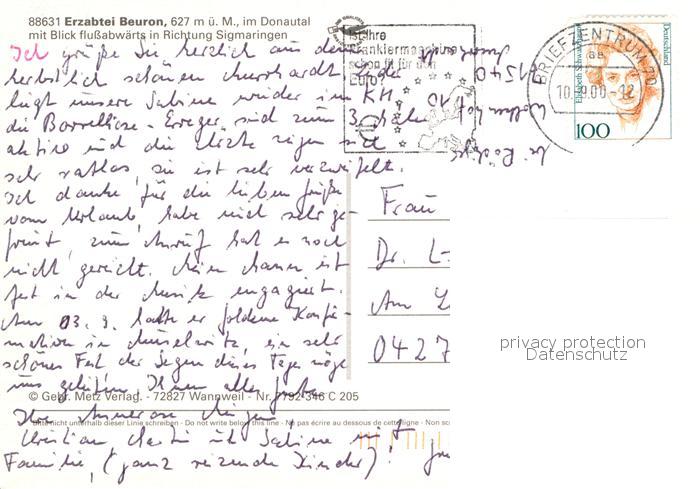 88631 Erzabtei Beuron, 627 m ü. M., im Donautal
mit Blick flußabwärts in Richtung Sigmaringen
Ist Ihre
Frankiermaschine
schon fit für den
Euro?
BRIEFZENTRUM 70
aa
10.9.00-12
Deutschland
Elisabeth Schwarzhaupt
100
Ich grüße Sie herzlich aus dem
herbstlich schönen
liegt unsere Sabine wieder im KH,
die Borreliose-Erreger sind zum 3.
aktiv und die Ärzte zeigen sich
sehr ratlos, sie ist sehr verzweifelt.
Ich danke für die lieben Grüße
vom Urlaub, habe mich sehr ge-
freut, zum Anruf hat es noch
nicht gereicht. Mein Mann ist
fest in der Musik engagiert.
Am 03.9. hatte er goldene Konfir-
mation in, ein sehr
schönes Fest der Segen dieses Tages möge
uns geleiten. Ihnen alles Gute
Ihre Annerose
Christian Martin und Sabine mit
Familie, (ganz reizende Kinder)!
Frau
Dr. L-
Am
0427
privacy protection
Datenschutz
© Gebr. Metz Verlag. - 72827 Wannweil - Nr. 7792-346 C 205
Bitte nicht unterhalb dieser Linie schreiben - Do not write below this line - Ne pas écrire au dessous de cette ligne - Non sc